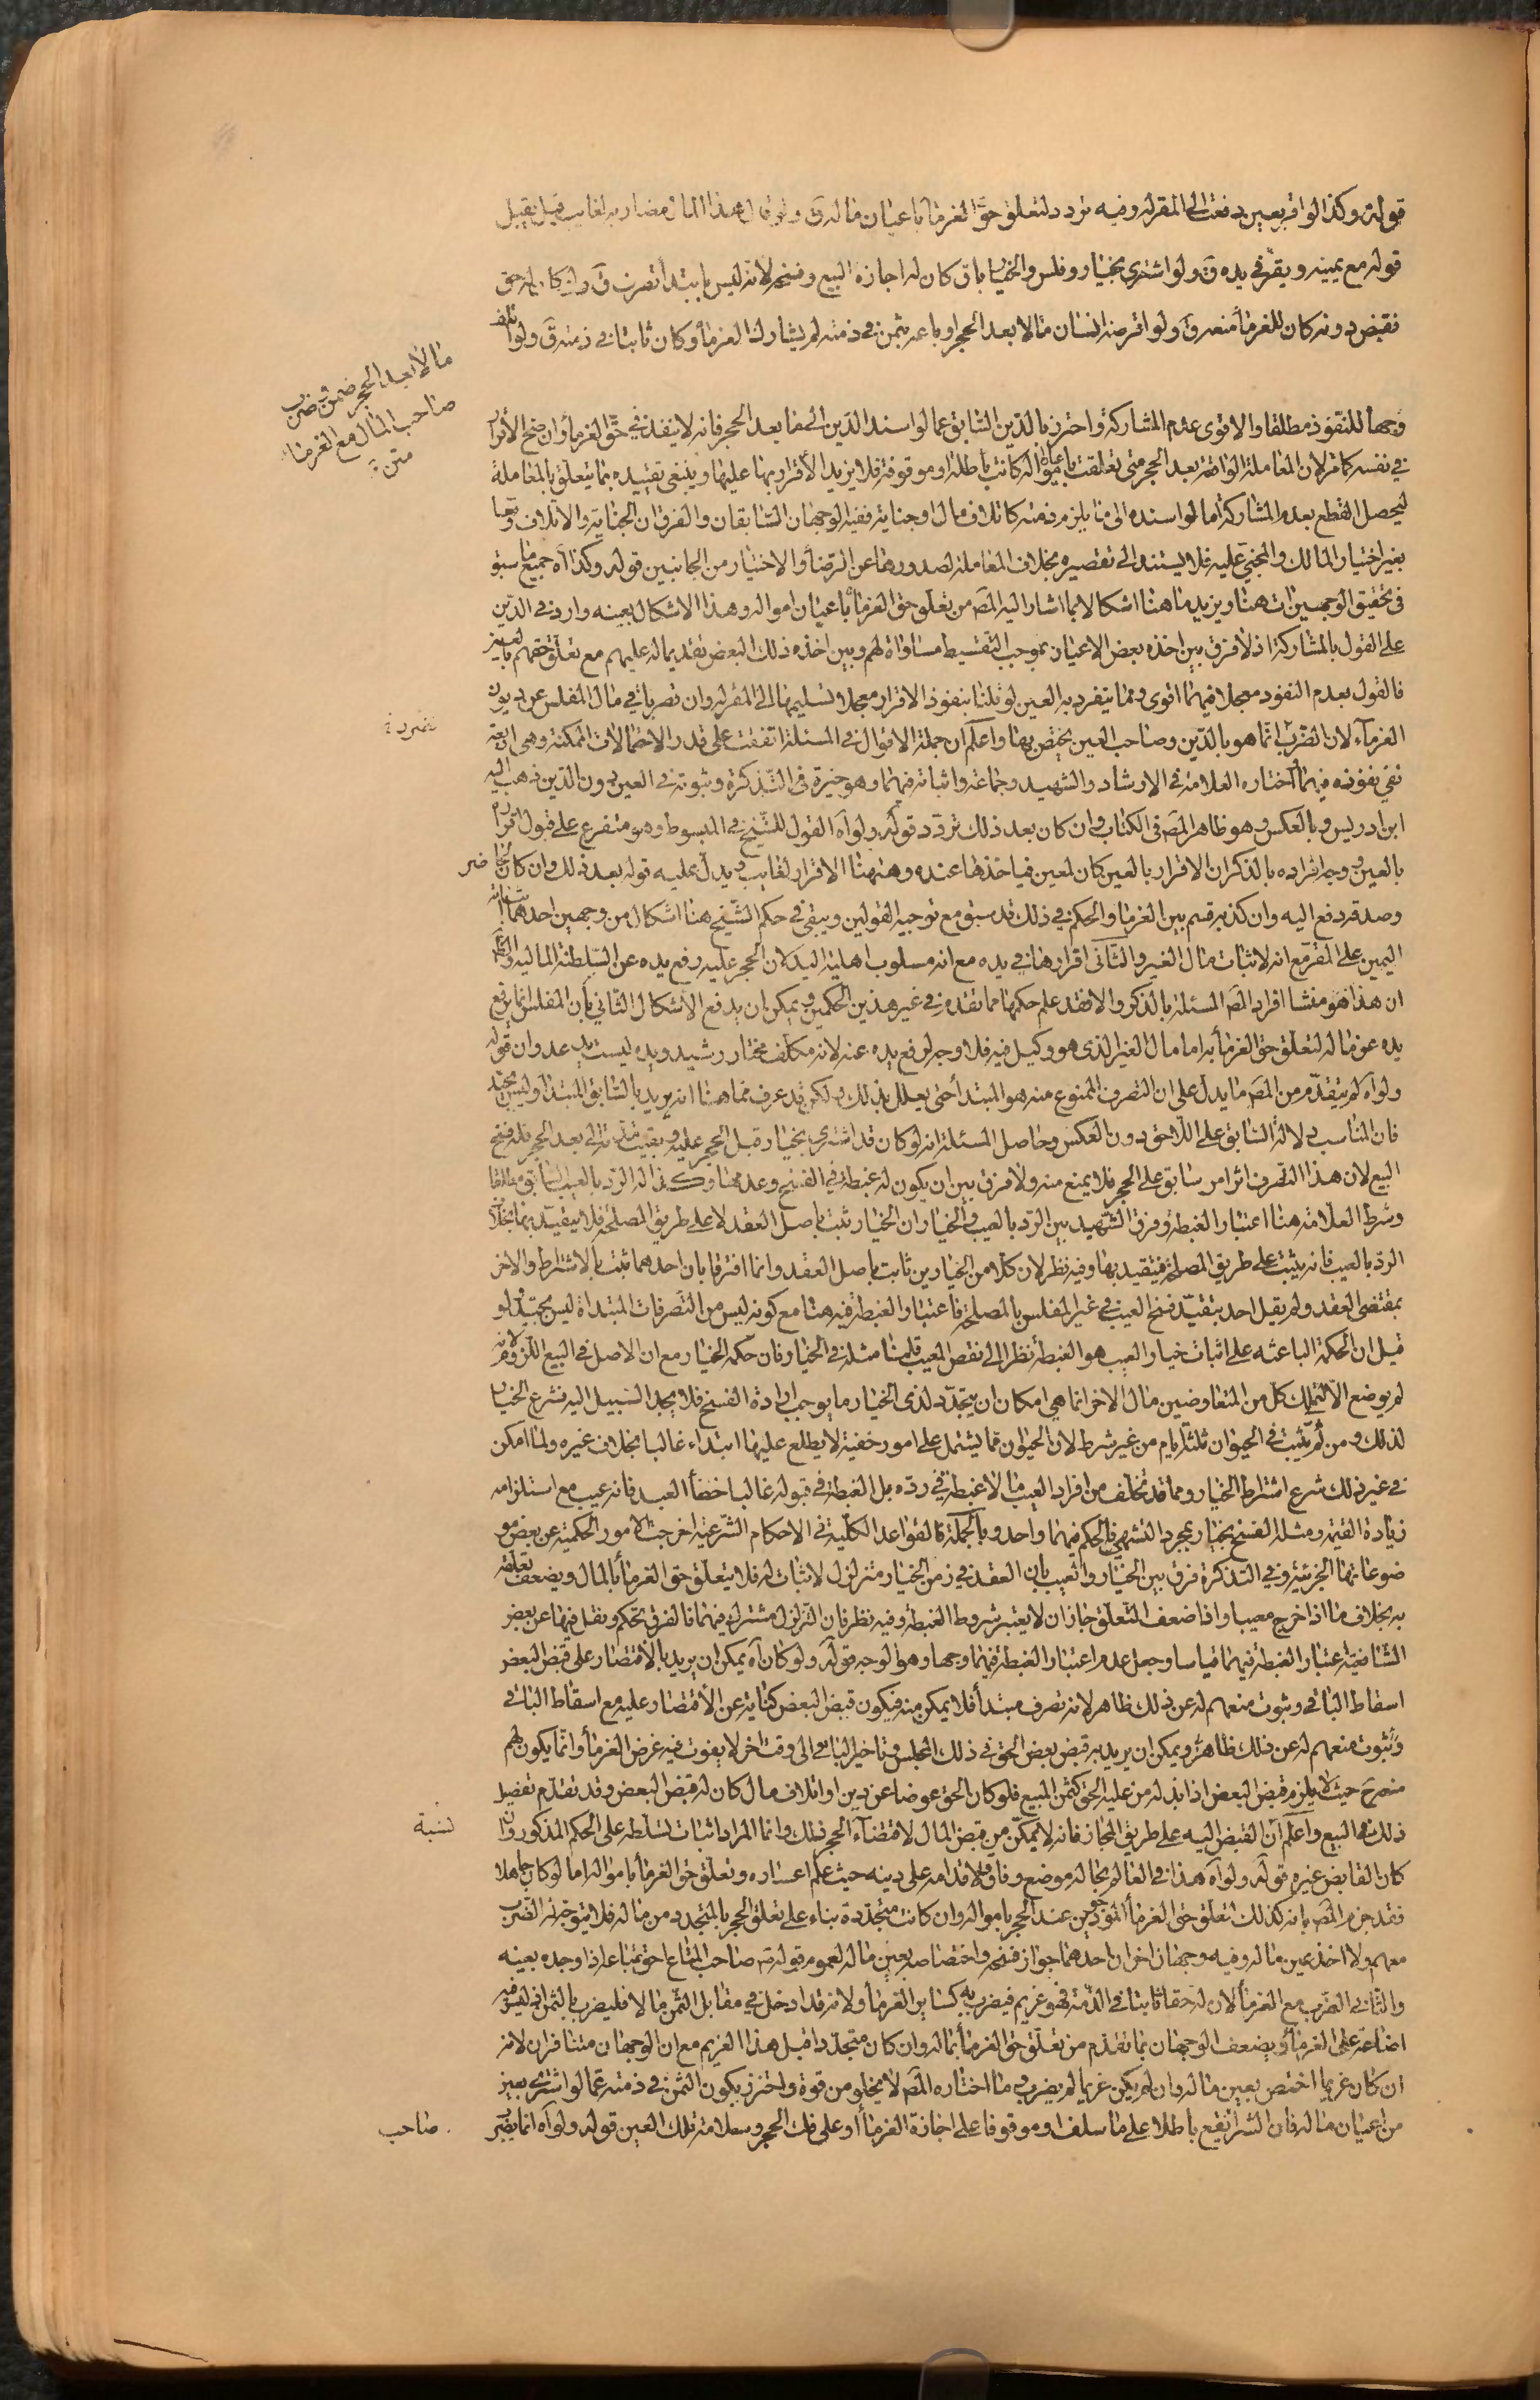 قوله وكذا لو اقر بعين دفعت الى المقر له وفيه تردد لتعلق حق الغرماء باعيان ماله ق ولو قال هذا المال مضاربه لغايب قيل يقبل
قوله مع يمينه ويقر في يده ق ولو اشترى بخيار وفلس والخيار باق كان له اجازة البيع وفسخه لانه ليس بابتداء تصرف ق ولو كان له حق
فقبض دونه كان للغرماء منعه ق ولو اقرضه انسان مالا بعد الحجر او باعه بثمن في ذمته لم يشارك الغرماء وكان ثابتا في ذمته ق ولو اتلف
مالا بعد الحجر ضمن وضرب
صاحب المال مع الغرماء
متن
وجها للنفوذ مطلقا والاقوى عدم المشاركة واحترز بالدين السابق عما لو اسند الدين الى ما بعد الحجر فانه لا ينفذ في حق الغرماء وان صح الاقرار
في نفسه كما مر لان المعاملة الواقعة بعد الحجر متى تعلقت باعيان امواله كانت باطلة او موقوفة فلا يزيد الاقرار بها عليها وينبغي تقييده بما يتعلق بالمعاملة
ليحصل القطع بعدم المشاركة اما لو اسنده الى ما يلزم ذمته كاتلاف مال او جناية ففيه الوجهان السابقان والفرق ان الجناية والاتلاف وقعا
بغير اختيار المالك والمجني عليه فلا يستند الى تقصيره بخلاف المعاملة لصدورها عن الرضا والاختيار من الجانبين قوله وكذا اه جميع ما سبق
في تحقيق الوجهين ات هنا ويزيد ما هنا اشكالا بما اشار اليه المص من تعلق حق الغرماء باعيان امواله وهذا الاشكال بعينه وارد في الدين
على القول بالمشاركة اذ لا فرق بين اخذه بعض الاعيان بموجب التقسيط مساواة لهم وبين اخذه ذلك البعض تقديما له عليهم مع تعلق حقهم بالعين
فالقول بعدم النفوذ معجلا فيهما اقوى ومما يتفرد به العين لو قلنا بنفوذ الاقرار معجلا تسليمها الى المقر له وان تضرباقي مال المفلس عن ديون
الغرماء لان الضرب انما هو بالدين وصاحب العين يختص بها واعلم ان جملة الاقوال في المسئلة اتفقت على قدر الاحتمالات الممكنة وهي اربعة
نفي نفوذه فيهما اختاره العلامة في الارشاد والشهيد وجماعة واثباته فيهما وهو خيرة في التذكرة وثبوته في العين دون الدين ذهب اليه
ابن ادريس وبالعكس وهو ظاهر المص في الكتاب وان كان بعد ذلك تردد قوله ولو اه القول للشيخ في المبسوط وهو متفرع على قبول اقراره
بالعين وجه افراده بالذكر ان الاقرار بالعين كان لمعين فياخذها عنده وههنا الاقرار لغايب ويدل عليه قوله بعد ذلك وان كان حاضر
وصدقه دفع اليه وان كذبه قسم بين الغرماء والحكم في ذلك قد سبق مع توجيه القولين ويبقى في حكم الشيخ هنا اشكال من وجهين احدهما اثباته
اليمين على المقر مع انه لاثبات مال الغير والثاني اقرارها في يده مع انه مسلوب اهلية اليد لان الحجر عليه رفع يده عن السلطنة المالية
ان هذا هو منشا افراد المص المسئلة بالذكر والا فقد علم حكمها مما تقدم في غير هذين الحكمين ويمكن ان يدفع الاشكال الثاني بان المفلس انما يرفع
يده عن ماله لتعلق حق الغرماء به اما مال الغير الذي هو وكيل فيه فلا وجه لرفع يده عنه لانه مكلف مختار رشيد ويده ليست يد عدوان قوله
ولو اه لم يتقدم من المص ما يدل على ان التصرف الممنوع منه هو المبتدا حتى يعلل بذلك ولكن قد عرف مما هنا انه يريد بالسابق المبتدا وليس بجيد
فان المناسب دلالة السابق على اللاحق دون العكس وحاصل المسئلة انه لو كان قد اشترى بخيار قبل الحجر عليه وبقيت مدته الى بعد الحجر فله فسخ
البيع لان هذا التصرف اثر امر سابق على الحجر فلا يمنع منه ولا فرق بين ان يكون له غبطة في الفسخ وعدمها وكذا له الرد بالعيب السابق مطلقا
وشرط العلامة هنا اعتبار الغبطة وفرق الشهيد بين الرد بالعيب والخيار ان الخيار يثبت باصل العقد لا على طريق المصلحة فلا يتقيد بها بخلاف
الرد بالعيب فانه يثبت على طريق المصلحة فيتقيد بها وفيه نظر لان كلا من الخيارين ثابت باصل العقد وانما افترقا بان احدهما ثبت بالاشتراط والاخر
بمقتضى العقد ولم يقل احد بتقيد فسخ العيب في غير المفلس بالمصلحة فاعتبار الغبطة فيه هنا مع كونه ليس من التصرفات المبتداة ليس بجيد ولو
قيل ان الحكمة الباعثة على اثبات خيار العيب هو الغبطة نظرا الى نقص المعيب قلنا مثله في الخيار فان حكمة الخيار مع ان الاصل في البيع اللزوم لانه
لم يوضع الا لتملك كل من المتعاوضين مال الاخر انما هي امكان ان يتجدد لذي الخيار ما يوجب ارادة الفسخ فلا يجد السبيل اليه فشرع الخيار
لذلك ومن ثم يثبت في الحيوان ثلثة ايام من غير شرط لان الحيوان مما يشتمل على امور خفية لا يطلع عليها ابتداء غالبا بخلاف غيره ولما امكن
في غير ذلك شرع اشتراط الخيار ومما قد تخلف من افراد العيب ما لا غبطة في رده بل الغبطة في قبوله غالبا خصاء العبد فانه عيب مع استلزامه
زيادة القيمة ومثله الفسخ بخيار بمجرد التشهي فالحكم فيهما واحد وبالجملة فالقواعد الكلية في الاحكام الشرعية اخرجت الامور الحكمية عن بعض مو
ضوعاتها الجزئية وفي التذكرة فرق بين الخيار والعيب بان العقد في زمن الخيار متزلزل لا ثبات له فلا يتعلق حق الغرماء بالمال ويضعف تعلقه
به بخلاف ما اذا خرج معيبا واذا ضعف التعلق جاز ان لا يعتبر شروط الغبطة وفيه نظر فان التزلزل مشترك فيهما فالفرق تحكم ونقل فيهما عن بعض
الشافعية اعتبار الغبطة فيهما قياسا وجعل عدم اعتبار الغبطة فيهما وجها وهو الوجه قوله ولو كان اه يمكن ان يريد بالاقتصار على قبض البعض
اسقاط الباقي وثبوت منعهم له عن ذلك ظاهر لانه تصرف مبتدأ فلا يمكن منه فيكون قبض البعض كناية عن الاقتصار عليه مع اسقاط الباقي
وثبوت منعهم له عن ذلك ظاهر ويمكن ان يريد به قبض بعض الحق في ذلك المجلس وتاخير الباقي الى وقت اخر لا يفوت فيه غرض الغرماء وانما يكون لهم
منعه ح حيث لا يلزم قبض البعض اذا بذله من عليه الحق كثمن المبيع فلو كان الحق عوضا عن دين او اتلاف مال كان له قبض البعض وقد تقدم تفصيل
ذلك في البيع واعلم ان نسبة القبض اليه على طريق المجاز فانه لا يمكن من قبض المال لاقتضاء الحجر ذلك وانما المراد اثبات تسلطه على الحكم المذكور وان
كان القابض غيره قوله ولو اه هذا في العالم بحاله موضع وفاق ولاقدامه على دينه حيث علم اعساره وتعلق حق الغرماء باموالها اما لو كان جاهلا
فقد جزم المص بانه كذلك لتعلق حق الغرماء الموجودين عند الحجر بامواله وان كانت متجددة بناء على تعلق الحجر بالمتجدد من ماله فلا يتوجه له الضرب
معهم ولا اخذ عين ماله وفيه وجهان اخران احدهما جواز فسخه واختصاصه بعين ماله لعموم قوله ص صاحب المتاع احق بمتاعه اذا وجده بعينه
والثاني الضرب مع الغرماء لان له حقا ثابتا في الذمة فهو غريم فيضرب به كساير الغرماء ولانه قد ادخل في مقابل الثمن مالا فليضرب بالثمن اذ ليس فيه
اضاعة على الغرماء ويضعف الوجهان بما تقدم من تعلق حق الغرماء بماله وان كان متجددا قبل هذا الغريم مع ان الوجهان متنافران لانه
ان كان غريما اختص بعين ماله وان لم يكن غريما لم يضرب وما اختاره المص لا يخلو من قوة واحترز بكون الثمن في ذمته عما لو اشترى بعين
من اعيان ماله فان الشراء يقع باطلا على ما سلف او موقوفا على اجازة الغرماء او على فك الحجر وسلامة تلك العين قوله ولو اه انما يضرب
صاحب